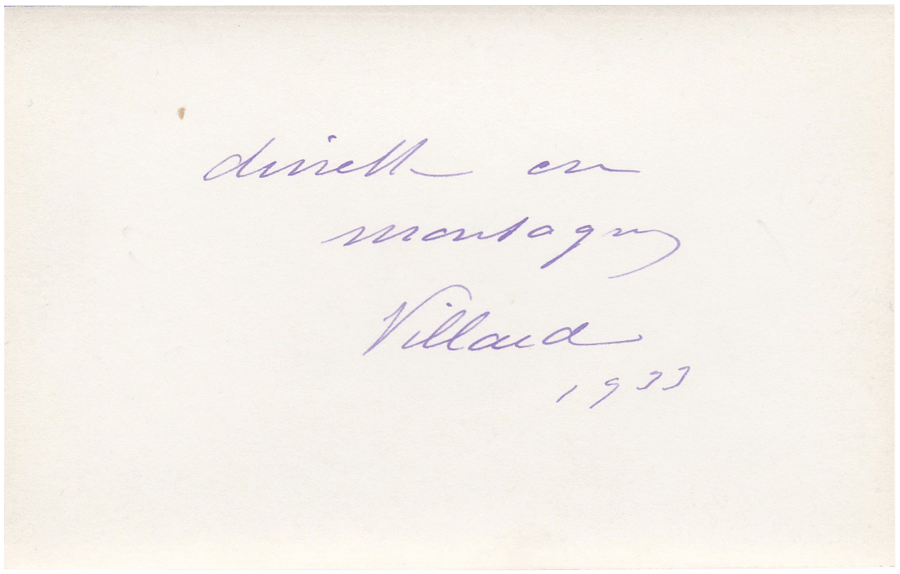 en
montagne
Villard
1933